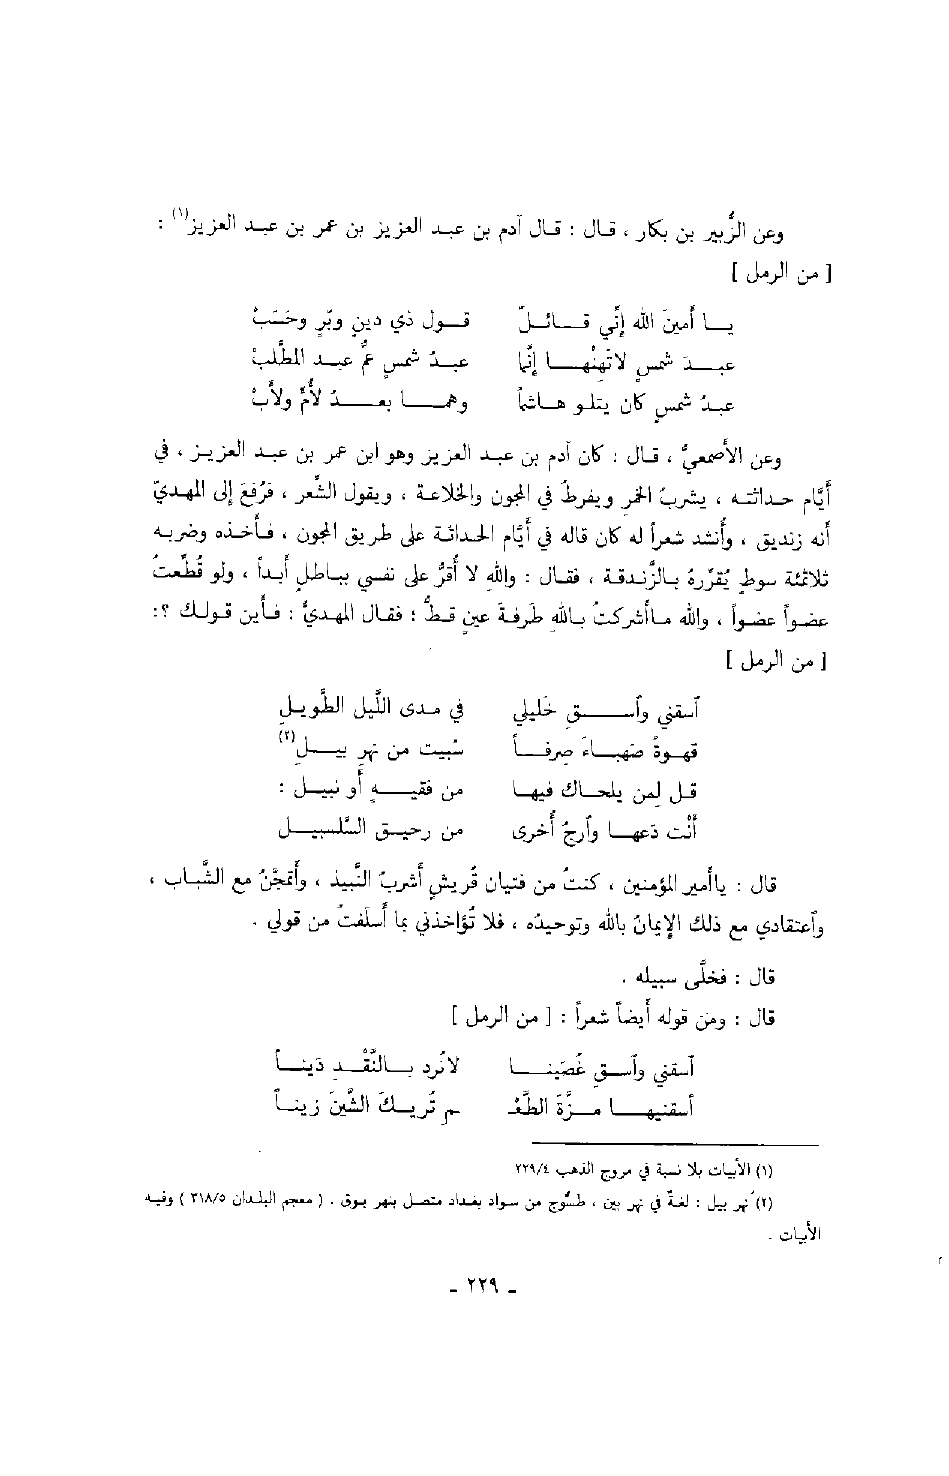 وعن الزُّبير بن بكار ، قال : قال آدم بن عبد العزيز بن عمر بن عبد العزيز(١) :
[ من الرمل ]
يا أمينَ الله إنِّي قائلٌ قول ذي دينٍ وبّرٍ وحَسَبْ
عبدَ شمسٍ لاتهنْها إنَّما عبدُ شمسٍ عمُّ عبد المطَّلبْ
عبدُ شمسٍ كان يتلو هاشماً وهما بعدُ لأُمٍّ ولأبْ
وعن الأصمعيِّ ، قال : كان آدم بن عبد العزيز وهو ابن عمر بن عبد العزيز ، في
أيَّام حداثته ، يشربُ الخمر ويفرطُ في المجون والخلاعة ، ويقول الشِّعر ، فرُفعَ إلى المهديّ
أنه زنديق ، وأُنشد شعراً له كان قاله في أيَّام الحداثة على طريق المجون ، فأخذه وضربه
ثلاثمئة سوطٍ يُقرّره بالزَّندقة ، فقال : واللهِ لا أُقرُّ على نفسي بباطلٍ أبداً ، ولو قُطِّعتُ
عضواً عضواً ، والله ماأشركتُ بالله طرفةَ عينٍ قطُّ ؛ فقال المهديُّ : فأين قولك ؟:
[ من الرمل ]
آسقني وآسقِ خليلي في مدى اللَّيل الطَّويلِ
قهوةً صَهباءَ صِرفاً سُبيت من نهر بيلِ(٢)
قل لمن يلحاك فيها من فقيهٍ أو نبيل :
أنْت دَعها وآرجُ أُخرى من رحيق السَّلسبيل
قال : ياأمير المؤمنين ، كنتُ من فتيان قُريشٍ أشربُ النَّبيذ ، وأتمجَّنُ مع الشَّباب ،
وآعتقادي مع ذلك الإيمانُ بالله وتوحيدُه ، فلا تُؤاخذني بما أسلفتُ من قولي .
قال : فخلَّى سبيله .
قال : ومن قوله أيضاً شعراً : [ من الرمل ]
آسقني وآسقِ غُصَينا لاتُرد بالنَّقْد دَيناً
آسقنيها مزَّةَ الطَّعْـ ـم تُريكَ الشَّينَ زيناً
(١) الأبيات بلا نسبة في مروج الذهب ٢٢٩/٤
(٢) نهر بيل : لغةٌ في نهر بين ، طسُّوج من سواد بغداد متصل بنهر بوق . ( معجم البلدان ٣١٨/٥ ) وفيه
الأبيات .
ـ ٢٢٩ ـ